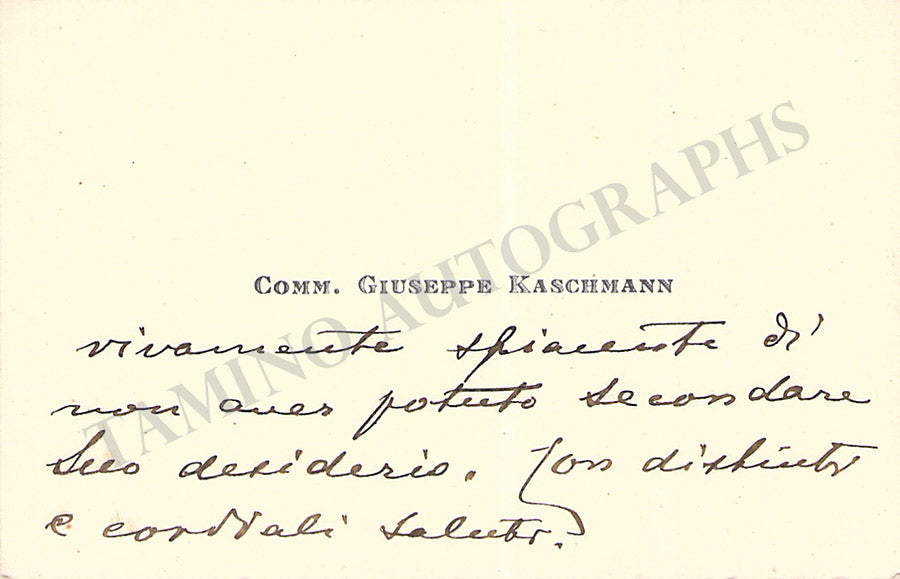 COMM. GIUSEPPE KASCHMANN
vivamente spiacente di
non aver potuto secondare
Suo desiderio. Con distinti
e cordiali saluti.
TAMINO AUTOGRAPHS